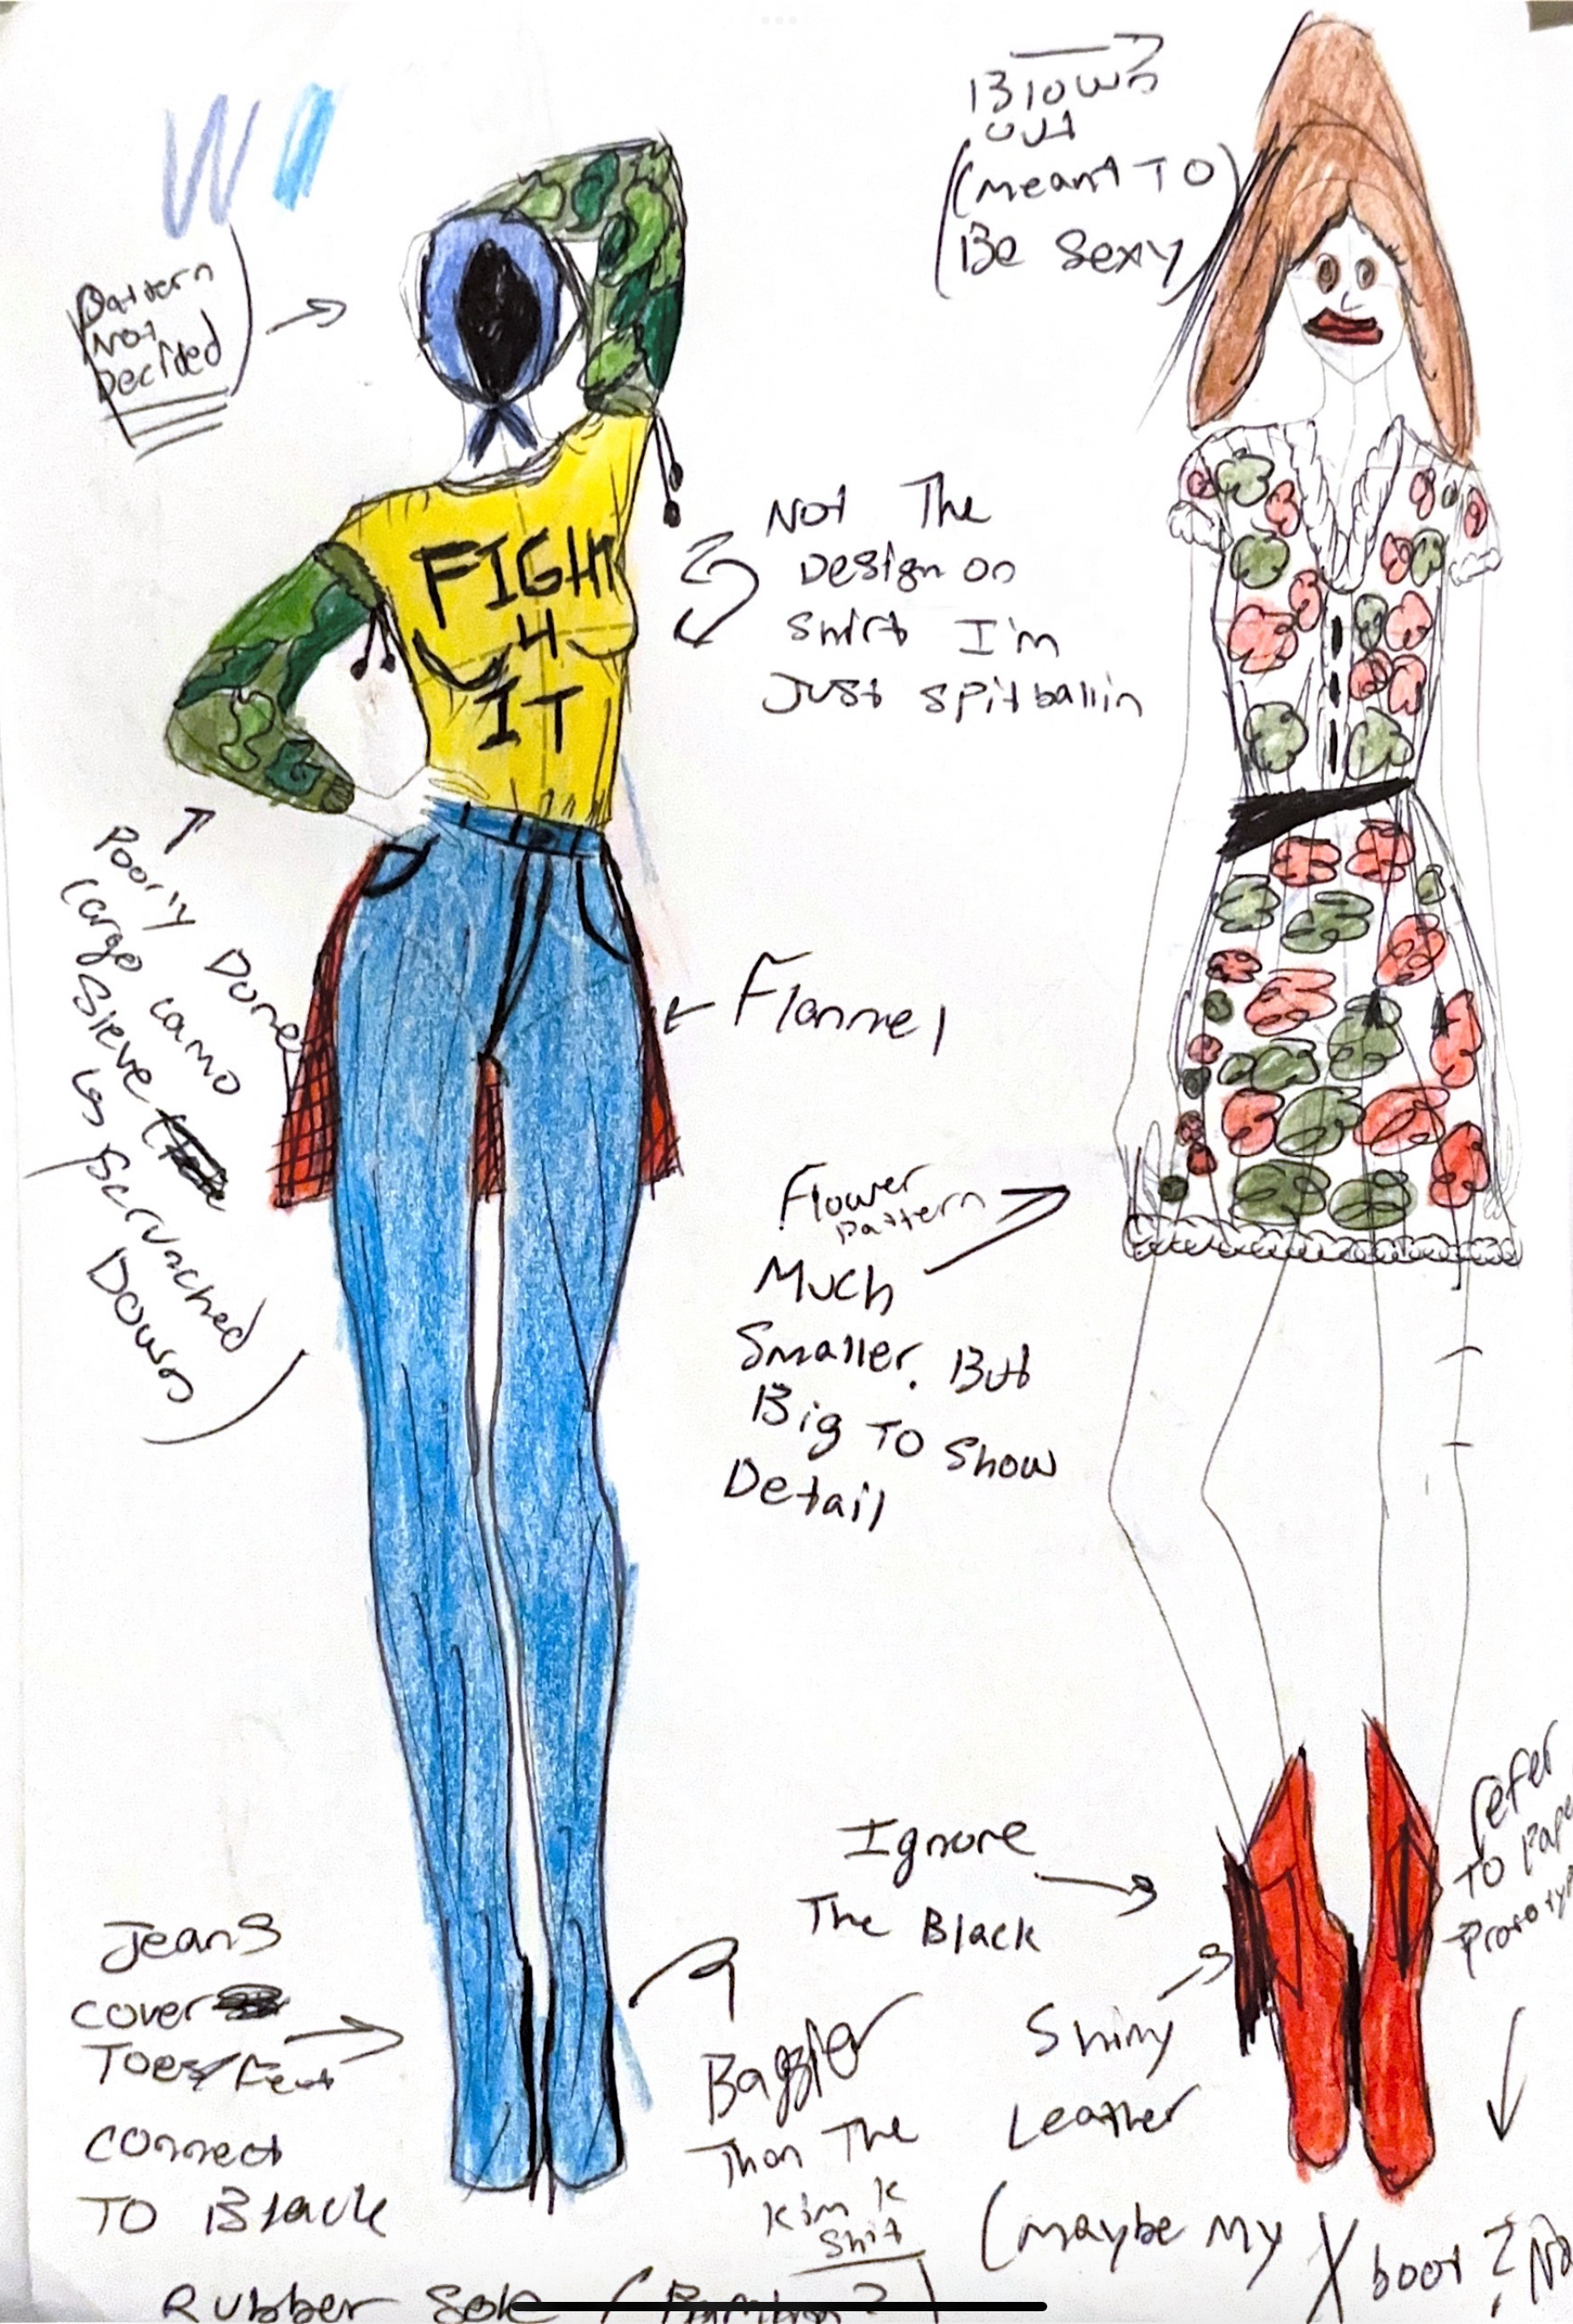 Pattern
Not
Decided
FIGHT
4
IT
Poorly Done
Large camo
Sleeve
(is scrunched
Down)
Jeans
cover
Toes/Feet
connect
TO Black
Rubber Sole
Blown
out
(meant TO
Be Sexy)
Not The
Design on
Shirt I'm
Just spitballin
Flannel
Flower
Pattern
Much
Smaller. But
Big TO Show
Detail
Ignore
The Black
Shiny
Leather
Baggier
Than The
Kim K
Shit
refer
TO Pape
Prototyp
(maybe my X boot?